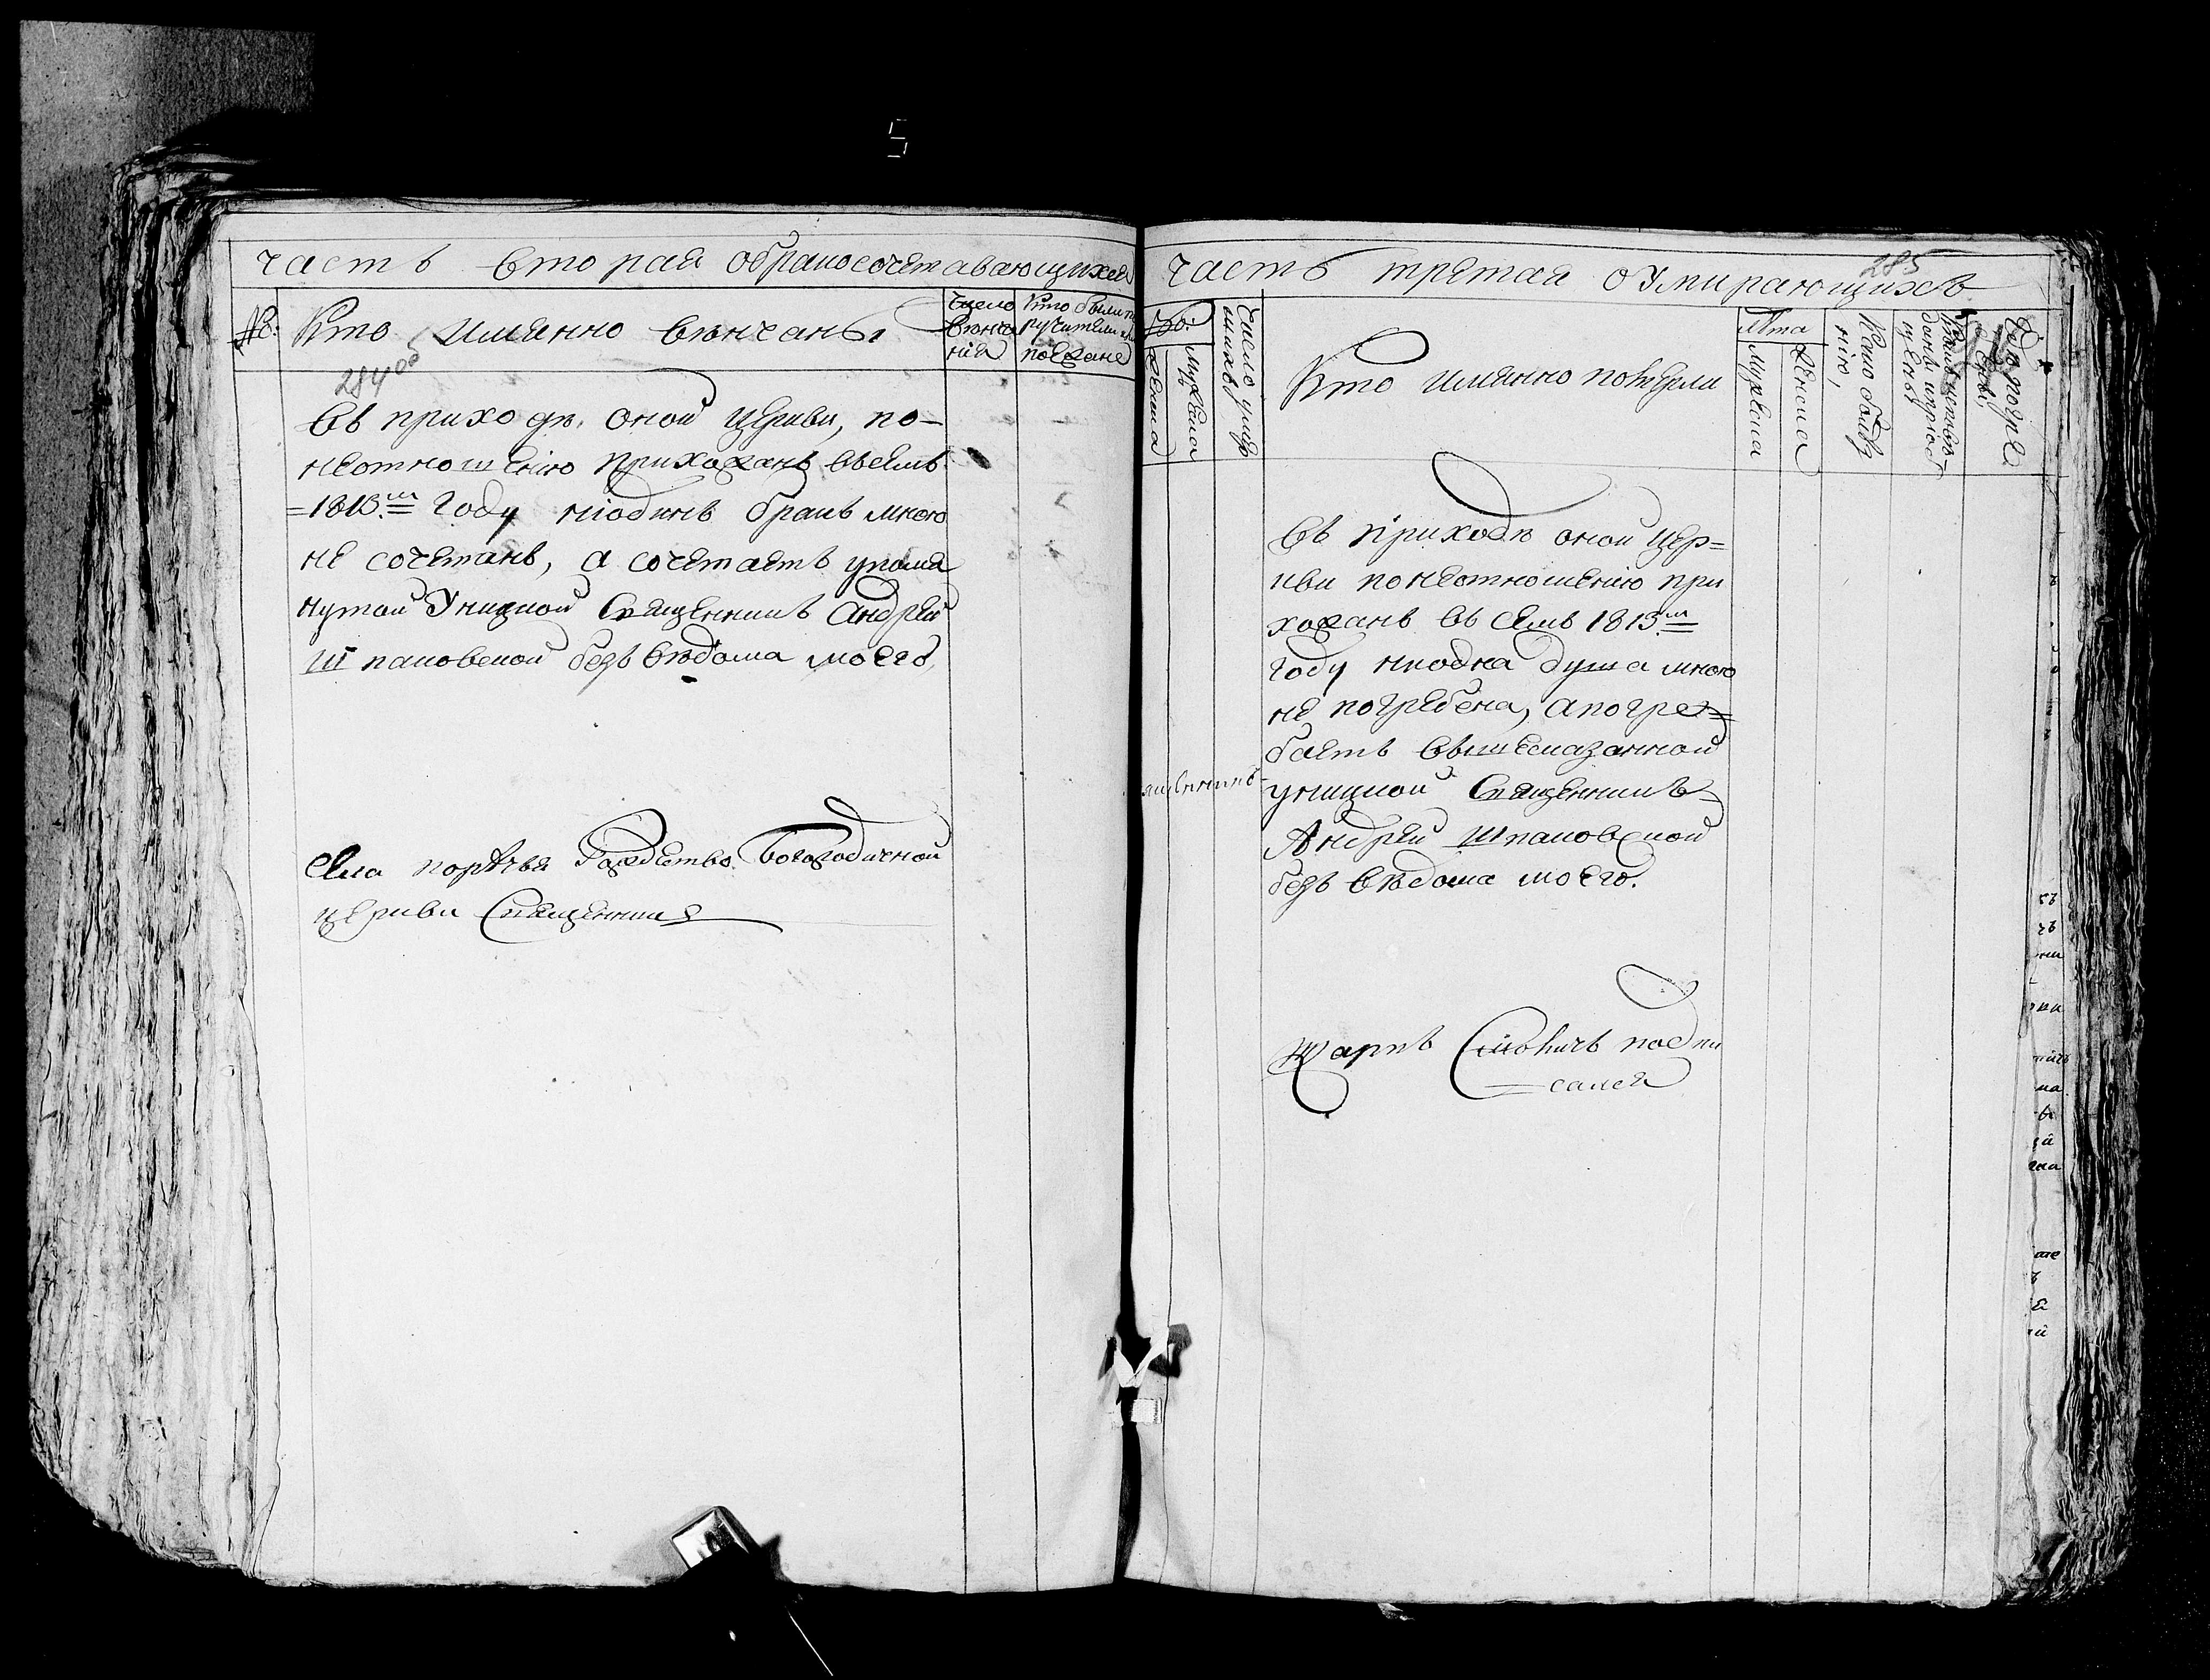 часть вторая обракосочетавающихся
№:
Кто имянно венчаны
Число
венча
ния
Кто были
ручители
поезжане
284 об
Въ приходѣ оной церкви, по-
неотношенію прихожанъ всемъ
=1813.м году ніодинъ бракъ мною
не сочетанъ, а сочетаетъ упомя
нутой Уницкой Священникъ Андрей
Шпаковской безъ вѣдома моего,
села порѣчья Рождество Богородичной
церкви Священник
часть третая оумирающихъ
285
№:
Мужеска
женска
Число умер
шихъ
Кто имянно померли
Лѣта
Мужеска
женска
Какою болѣз
нію,
Въ приходѣ оной цер=
кви понеотношенію при
хожанъ въ семъ 1813.м
году ниодна душа мною
не погребена, а погре=
баетъ вышесказанной
уницкой Священникъ
Андрей Шпаковской
безъ вѣдома моего.
Карпъ подпи
сался